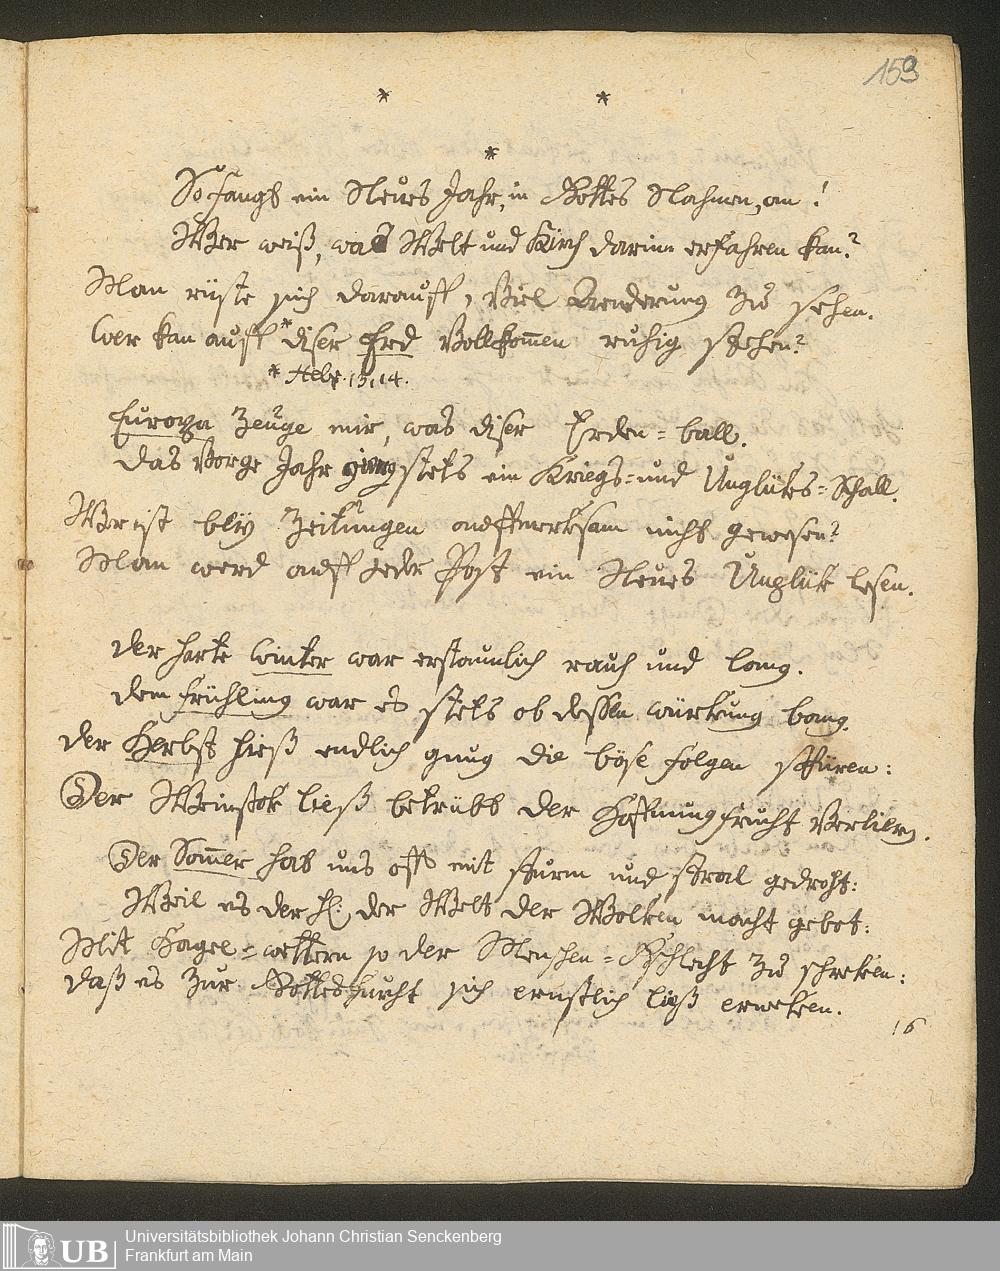 159
* *
*
So fangt ein Neues Jahr, in Gottes Nahmen, an!
Wer weiß, was Welt und Kirch darinn erfahren kan?
Man rüste sich darauff, Viel Aenderung zu sehen.
wer kan auff *diser Erd Vollkom̄en ruhig stehen?
* Hebr. 13, 14.
Europa Zeuge mir, was diser Erden-ball.
das Vorge Jahr gieng stets ein Kriegs- und Unglüks-Schall.
Wer ist bey Zeitungen auffmerksam nicht gewesen?
Man werd auff jeder Post ein Neues Unglük lesen.
der harte Winter war erstaunlich rauh und lang.
dem frühling war es stets ob dessen würkung bang.
der Herbst hieß endlich gnug die böse folgen spüren:
Der Weinstok ließ betrübt der Hoffnung frucht Verlieren.
Der Som̄er hat uns offt mit sturm und stral gedroht:
Weil es der H. der Welt der Wolken macht gebot:
Mit Hagel-wettern so der Menschen-Gschlecht zu schreken:
daß es zur Gottesfurcht sich ernstlich ließ erweken.
16
UB
Universitätsbibliothek Johann Christian Senckenberg
Frankfurt am Main